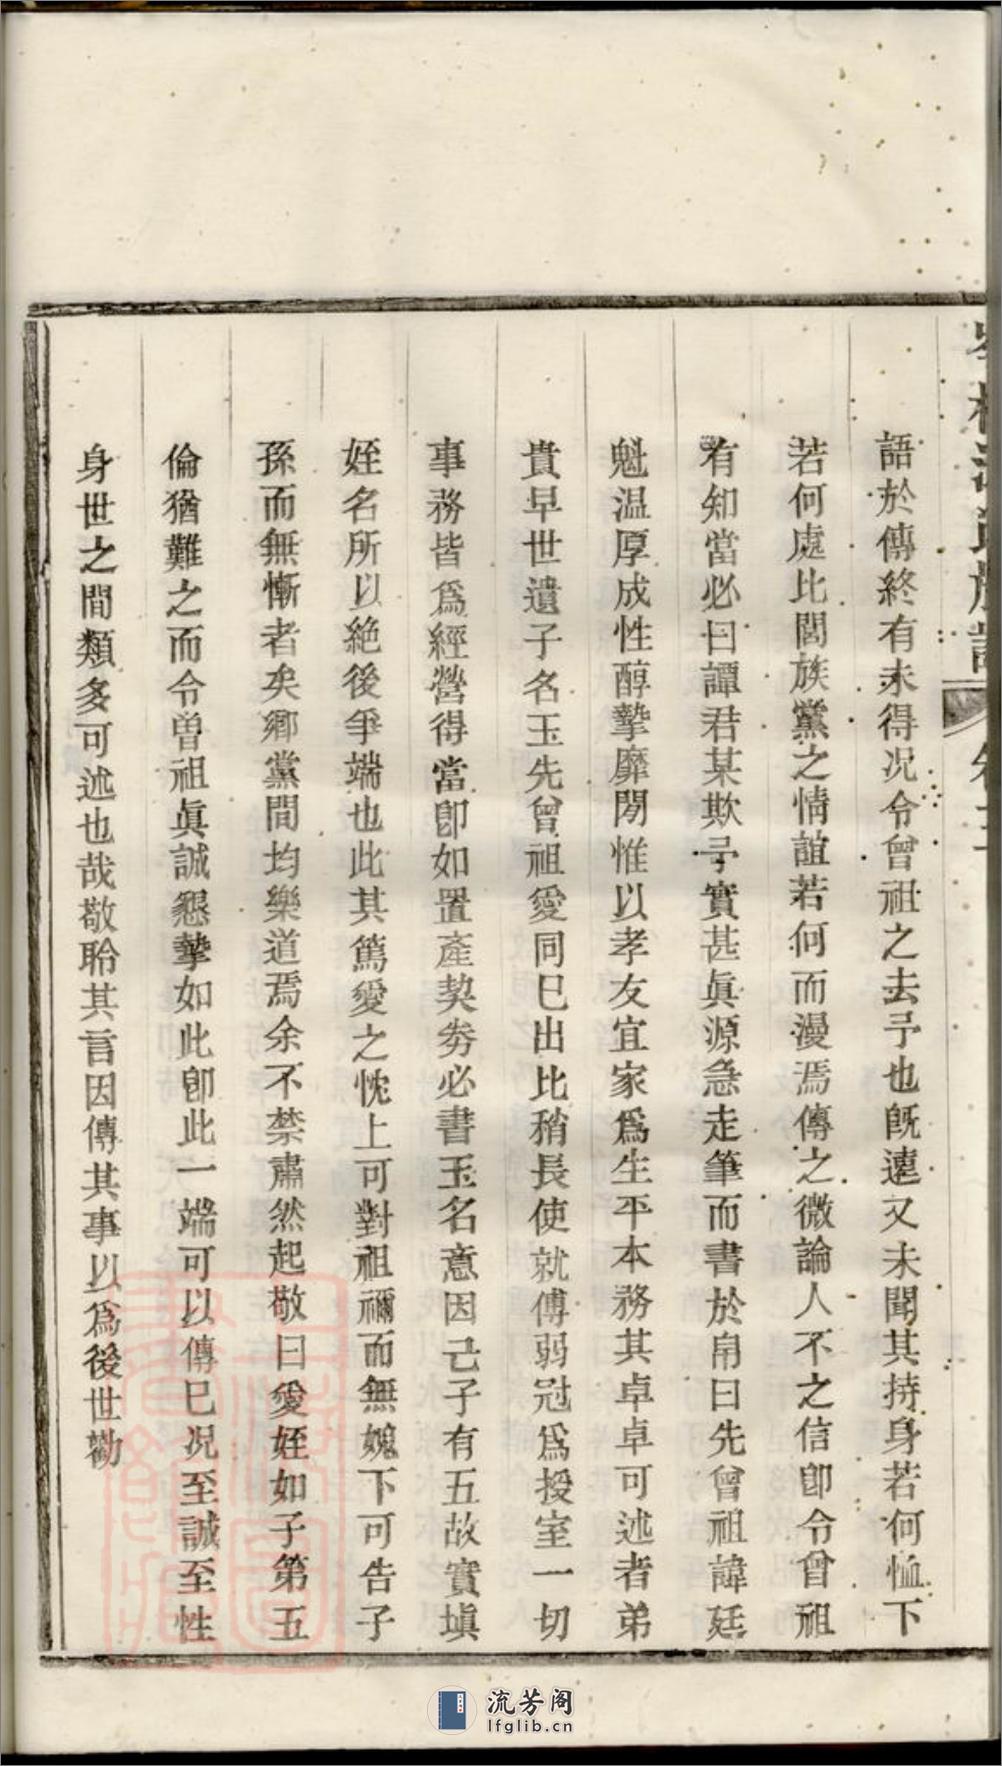 語於傳終有未得况令曾祖之去予也旣遠又未聞其持身若何恤下
若何處比閭族黨之情誼若何而漫焉傳之微論人不之信卽令曾祖
有知當必曰譚君某欺予實甚眞源急走筆而書於帛曰先曾祖諱廷
魁温厚成性醇摯靡閒惟以孝友宜家爲生平本務其卓卓可述者弟
貴早世遺子名玉先曾祖愛同已出比稍長使就傅弱冠爲授室一切
事務皆爲經營得當卽如置產契劵必書玉名意因己子有五故實塡
姪名所以絶後爭端也此其篤愛之忱上可對祖禰而無媿下可告子
孫而無慚者矣鄉黨間均樂道焉余不禁肅然起敬曰愛姪如子第五
倫猶難之而令曽祖眞誠懇摯如此卽此一端可以傳已况至誠至性
身世之間類多可述也哉敬聆其言因傳其事以爲後世勸
流芳阁
lfglib.cn